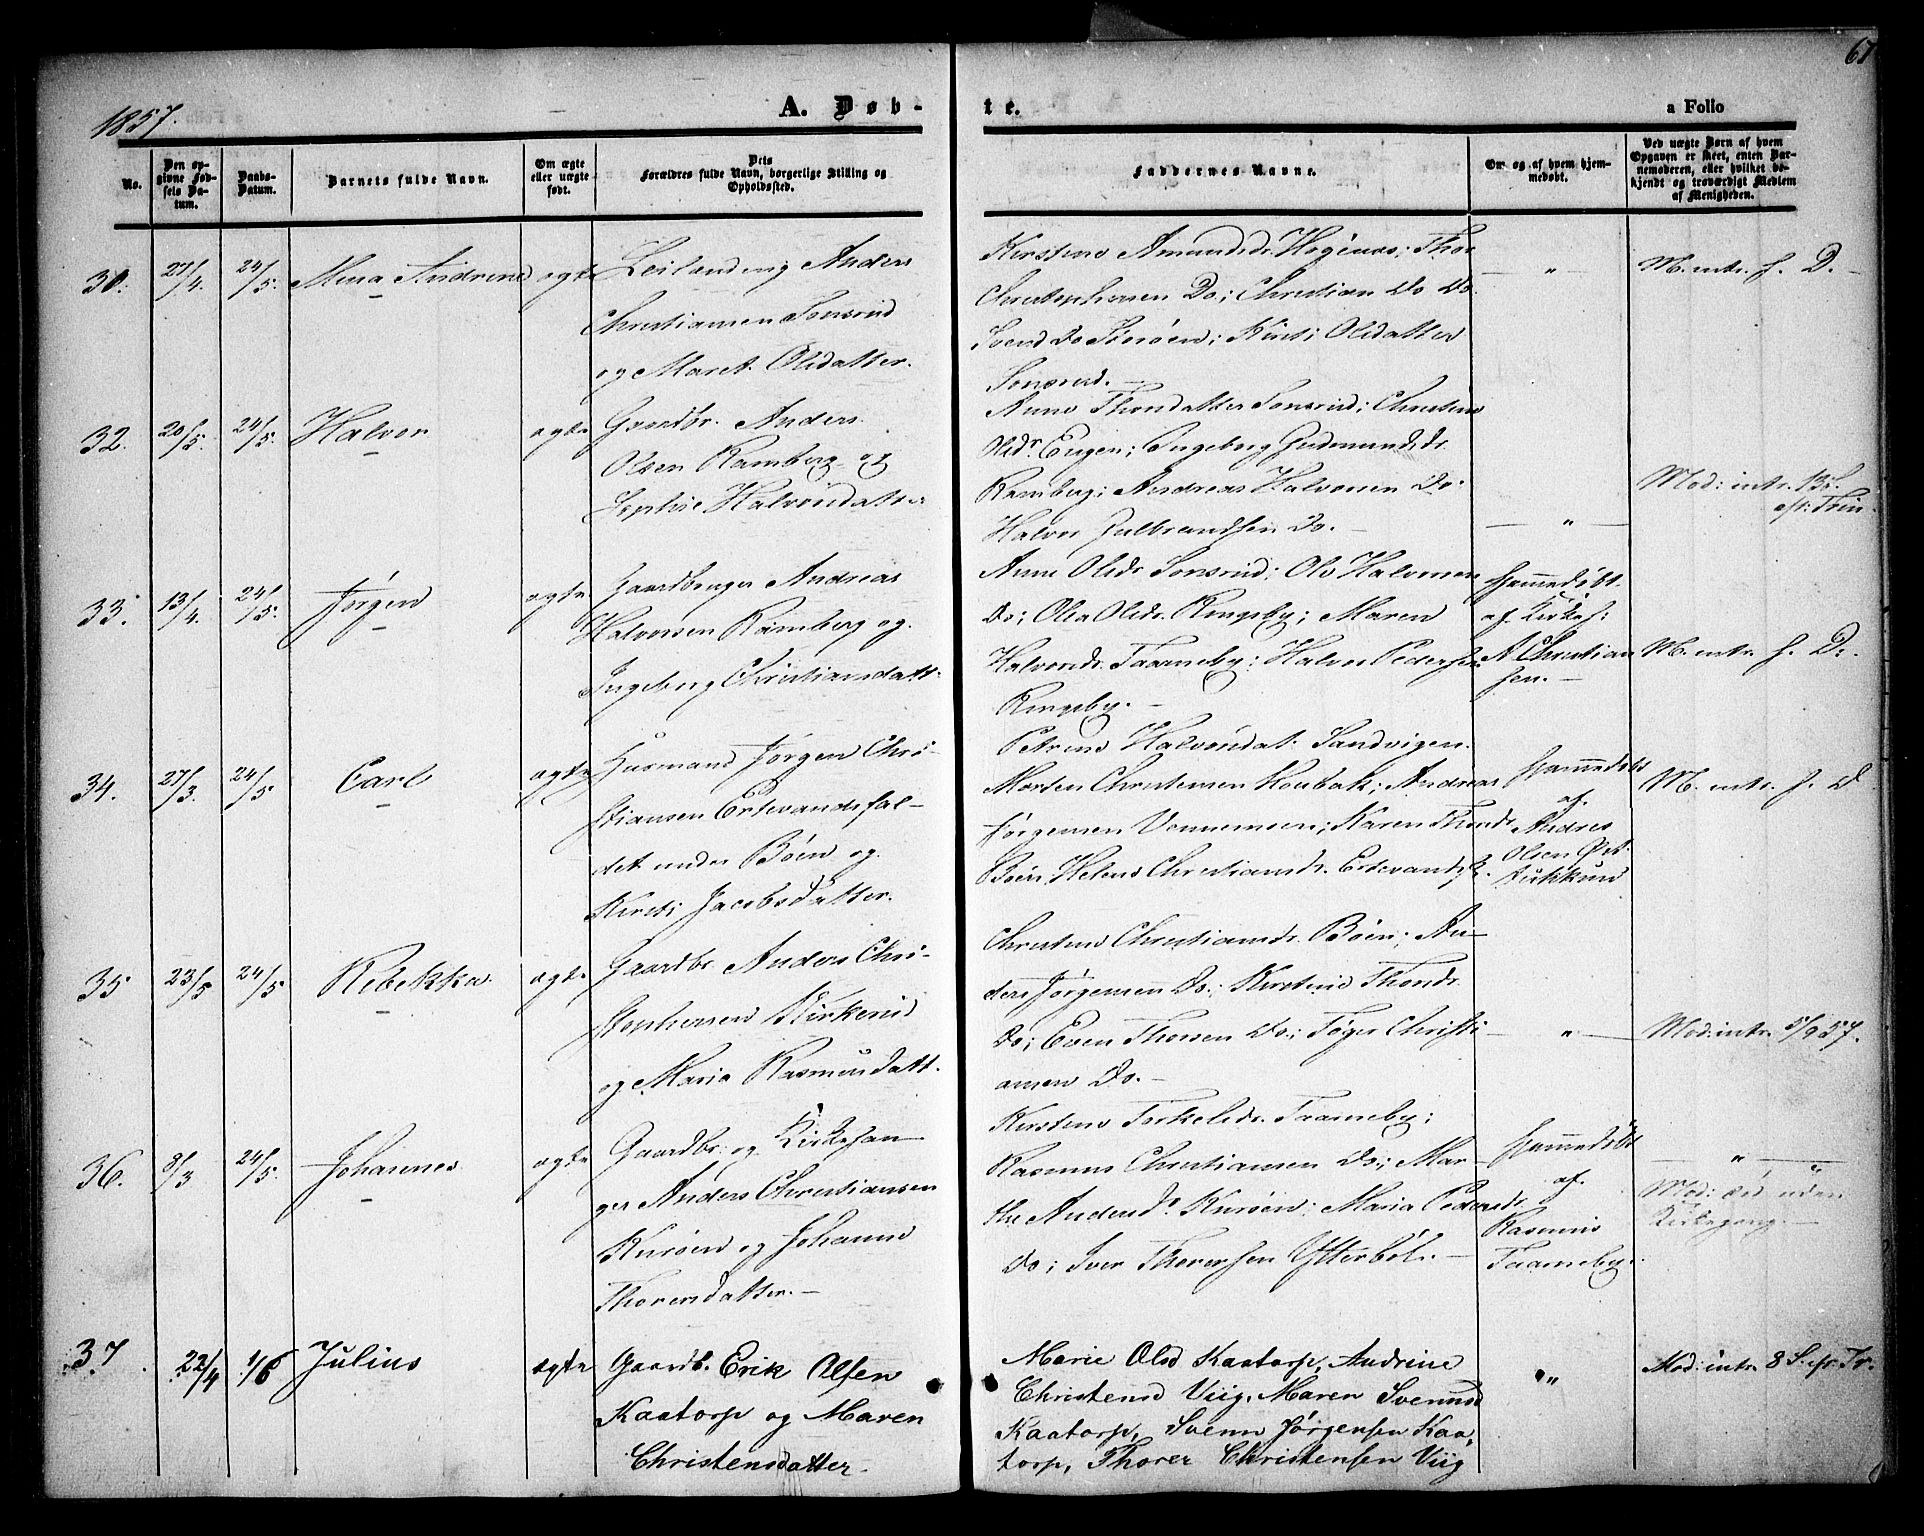 1857.
A. Døb-
te.
a Folio
67
No.
Den op-
givne Fød-
sels Da-
tum.
Daabs-
Datum.
Barnets fulde Navn.
Om ægte
eller uægte
født.
Dets
Forældres fulde Navn, borgerlige Stilling og
Opholdssted.
Faddernes Navne.
Om og af hvem hjem-
medøbt.
Ved uægte Børn af hvem
Opgaven er skeet, enten Bar-
nemoderen, eller hvilket be-
kjendt og troværdigt Medlem
af Menigheden.
30.
27/4.
24/5.
Mina Andrine
ægte
Leilænding Anders
Christiansen Sonsrud
og Maret Olsdatter.
Kirstine Amundsdr. Høgenæs; Thor
Christophersen Do; Christian Do Do.
Svend Do Storøen; Kirsti Olsdatter
Sonsrud.
"
M. intr. s. D.
32.
20/5.
24/5.
Halvor
ægte
Gaardbr. Anders
Olsen Ramberg og
Sophie Halvorsdatter
Anne Thorsdatter Sonsrud; Christine
Olsdr. Engen; Ingeborg Gudmundsdr.
Ramberg; Andreas Halvorsen Do.
Halvor Gulbrandsen Do.
"
Mod: intr. 13 S.
eft: Trin.
33.
13/4.
24/5.
Jørgen
ægte
Gaardbruger Andreas
Halvorsen Ramberg og
Ingeborg Christiansdatt.
Anne Olsdr Sonsrud; Ole Halvorsen
Do; Olea Olsdr. Ringsby; Maren
Halvorsdr. Taarneby; Halvor Pedersen
Ringsby.
Hjemmedøbt
af Kirkes:
A Christian
sen.
M. intr. s. D.
34.
27/3.
24/5
Carl
ægte
Huusmand Jørgen Chri-
stiansen Ertevandsfal-
det under Böen og
Kirsti Jacobsdatter.
Petrine Halvorsdat. Sandvigen.
Morten Christensen Houbak; Andreas
Jørgensen Vonnemoen; Karen Thorsdr.
Böen, Helene Christiansdr. Ertevandsf.
Hjemmedøbt
af
Andres
Olsen
M. intr. s. D
35
23/5
24/5
Rebekka
ægte
Gaardbr. Anders Chri-
stophersen Kirkerud
og Maria Rasmusdatt.
Christine Christiansdr. Böen; An-
ders Jørgensen Do.; Kirstine Thorsdr.
Do; Even Thorsen Do.; Tøger Christi
ansen Do.
"
Mod: intr. 5/9 57.
36.
8/3
24/5.
Johannes
ægte
Gaardbr. og Kirkesan
ger Anders Christiansen
Kurøen og Johanne
Thorersdatter.
Kirstine Torkelsdr. Taarneby;
Rasmus Christiansen Do; Mar-
the Andersdr Kurøen; Maria Pedersdr.
Do; Iver Thoresen Ytterböl.
Hjemmedøbt
af
Rasmus
Taarneby.
" "
Mod: død uden
Kirkegang.
37.
22/4
1/6
Julius
ægte
Gaardb. Erik Olsen
Kaatorp og Maren
Christensdatter
Marie Olsd Kaatorp, Andrine
Christensd Viig, Maren Svennsd
Kaatorp, Svenn Jørgensen Kaa,
torp, Thorer Christensen Viig
"
Mod: intr. 8 S. ef: Tr.